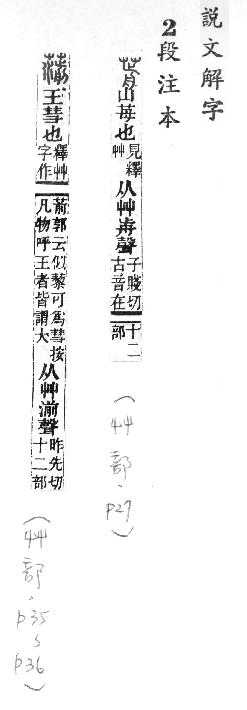 説文解字
2段注本
山苺也見釋艸从艸歬聲子賤切古音在十二部
(艸部、p27)
王彗也釋艸字作葥郭云似藜可爲彗按凡物呼王者皆謂大从艸湔聲昨先切十二部
(艸部、p35~p36)